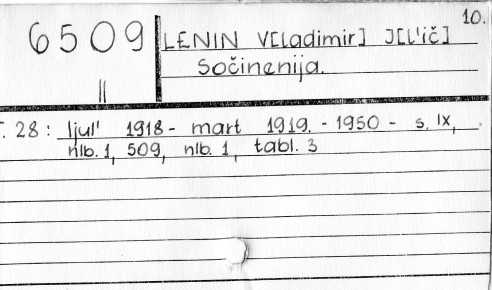 10.
6509 LENIN V[ladimir] J[l'ič]
Sočinenija.
II
T. 28: Ijul' 1918 - mart 1919. - 1950 - s. IX,
nlb. 1, 509, nlb. 1, tabl. 3